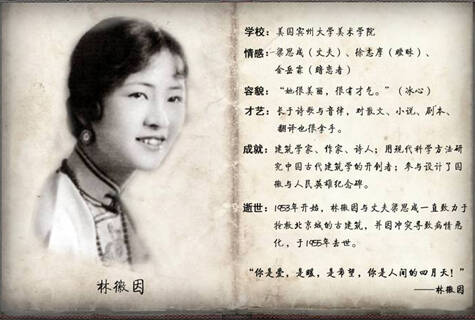 学校：美国宾州大学美术学院
情感：梁思成（丈夫）、徐志摩（暧昧）、
金岳霖（暗恋者）
容貌：“她很美丽，很有才气。”（冰心）
才艺：长于诗歌与音律，对散文、小说、剧本、
翻译也很拿手。
成就：建筑学家、作家、诗人；用现代科学方法研
究中国古代建筑学的开创者；参与设计了国
徽与人民英雄纪念碑。
逝世：1953年开始，林徽因与丈夫梁思成一直致力于
拯救北京城的古建筑，并因冲突导致病情恶
化，于1955年去世。
“你是爱，是暖，是希望，你是人间的四月天！”
——林徽因
林徽因